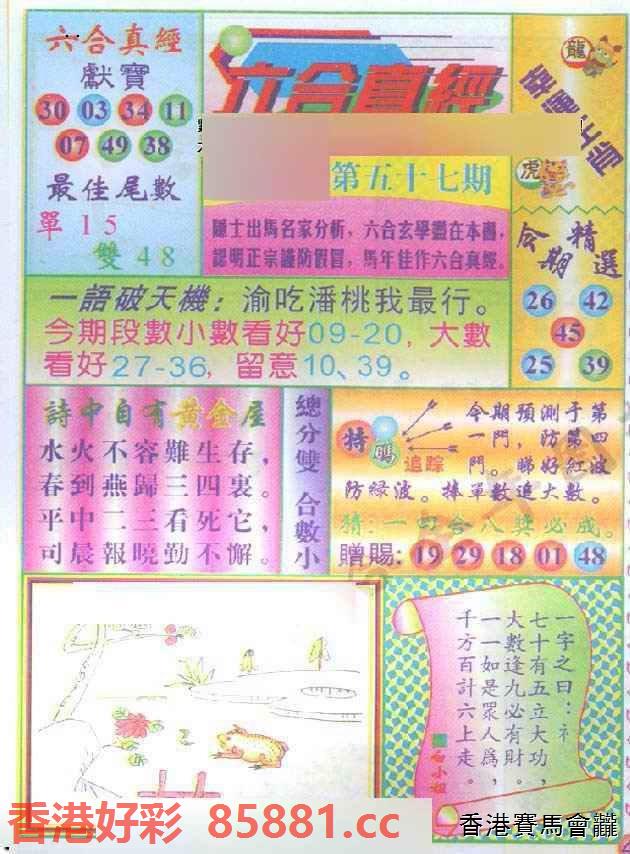 六合真經
獻寶
30 03 34 11
07 49 38
最佳尾數
單15
雙48
六合真經
第五十七期
隱士出馬名家分析，六合玄學盡在本圖，
認明正宗謹防假冒，馬年佳作六合真經。
龍
虎
今期精選
26 42
45
25 39
一語破天機：渝吃潘桃我最行。
今期段數小數看好09-20，大數
看好27-36，留意10、39。
詩中自有黃金屋
水火不容難生存，
春到燕歸三四裏。
平中二三看死它，
司晨報曉勤不懈。
總分雙 合數小
特碼
追踪
今期預測于第
一門，防第四
門。睇好紅波
防綠波。捧單數追大數。
猜：一四合八獎必成。
贈賜：19 29 18 01 48
一字之曰：衤
七十有五立大功，
大數逢九必有財。
一一如是眾人為，
千方百計六上走。
白小姐
香港好彩 85881.cc
香港賽馬會